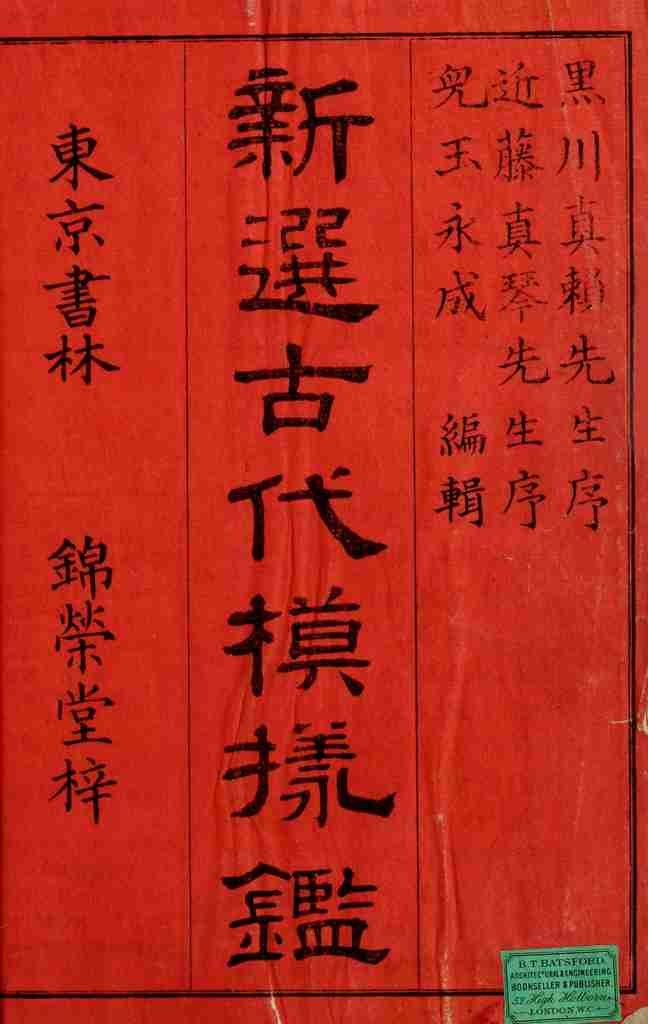 黒川真頼先生序
近藤真琴先生序
兒玉永成 編輯
新選古代模様鑑
東京書林 錦榮堂梓
B. T. BATSFORD,
ARCHITECTURAL & ENGINEERING
BOOKSELLER & PUBLISHER,
52 High Holborn,
LONDON, W.C.